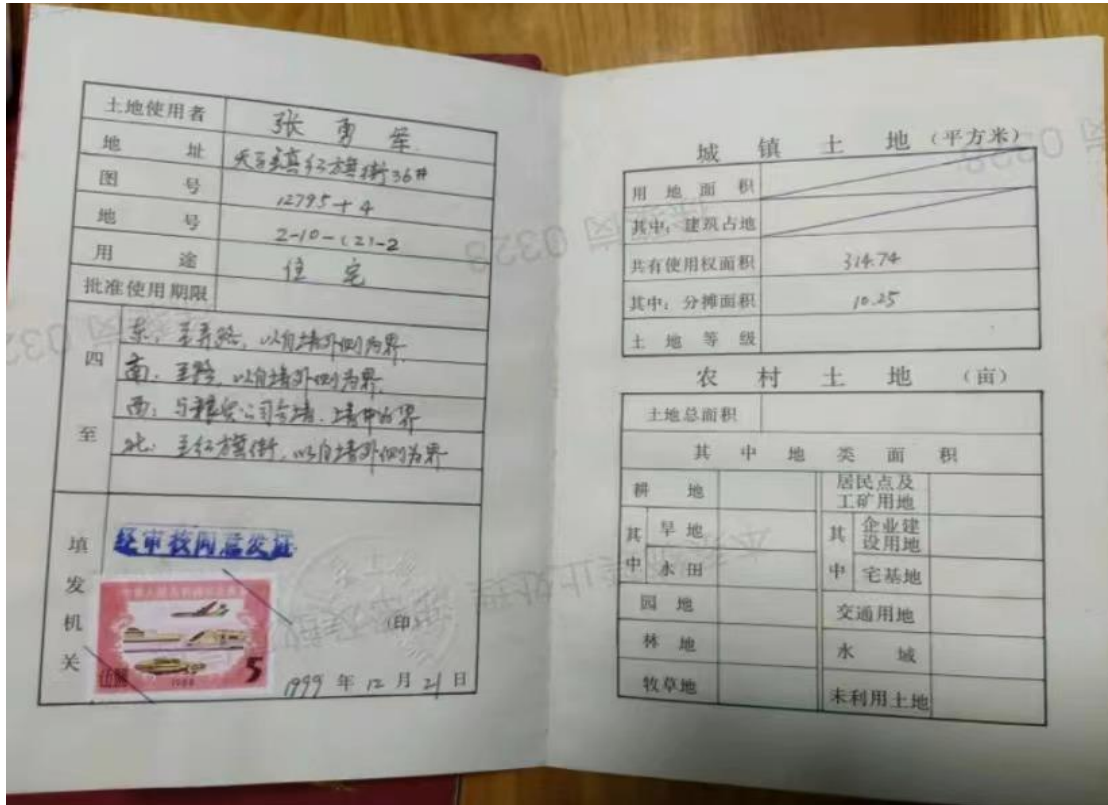 土地使用者 张勇军
地址 天王镇红旗街36#
图号 12795+4
地号 2-10-(2)-2
用途 住宅
批准使用期限
四至
东：至弄路，以自墙外侧为界
南：至路，以自墙外侧为界
西：与粮贸公司合墙，墙中为界
北：至红旗街，以自墙外侧为界
填发机关
经审核同意发证
伍圆 1988 5
(印)
1999年12月21日
城镇土地（平方米）
用地面积
其中：建筑占地
共有使用权面积 314.74
其中：分摊面积 10.25
土地等级
农村土地（亩）
土地总面积
其中地类面积
耕地 居民点及工矿用地
其中 旱地 其中 企业建设用地
水田 宅基地
园地 交通用地
林地 水域
牧草地 未利用土地